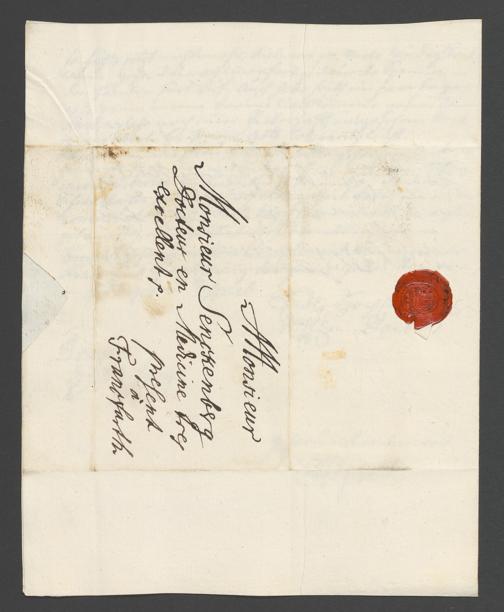 A Monsieur
Monsieur Senckenberg
Docteur en Medicine tres
excellent p.
present
a
Francfurth.